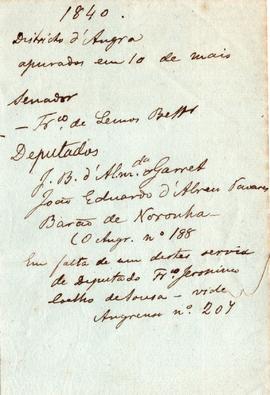 1840.
Districto d'Angra
apurados em 10 de maio
Senador
— Fr.co de Lemos Bett
Deputados
J. B. d'Alm.da Garret
João Eduardo d'Abreu Tavares
Barão de Noronha
(O Angr. nº 188
Em falta de um destes servia
de Deputado Fr.co Jeronimo
Coelho de Sousa — vide
Angrense nº. 207